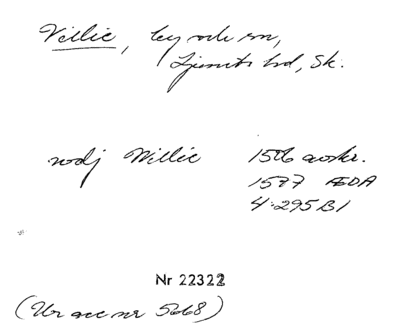 Villie, by och sn,
Ljunits hd, Sk.
nodj Willie 1506 avskr.
1577 ÆDA
4:295 B1
Nr 22322
(Ur acc nr 5668)